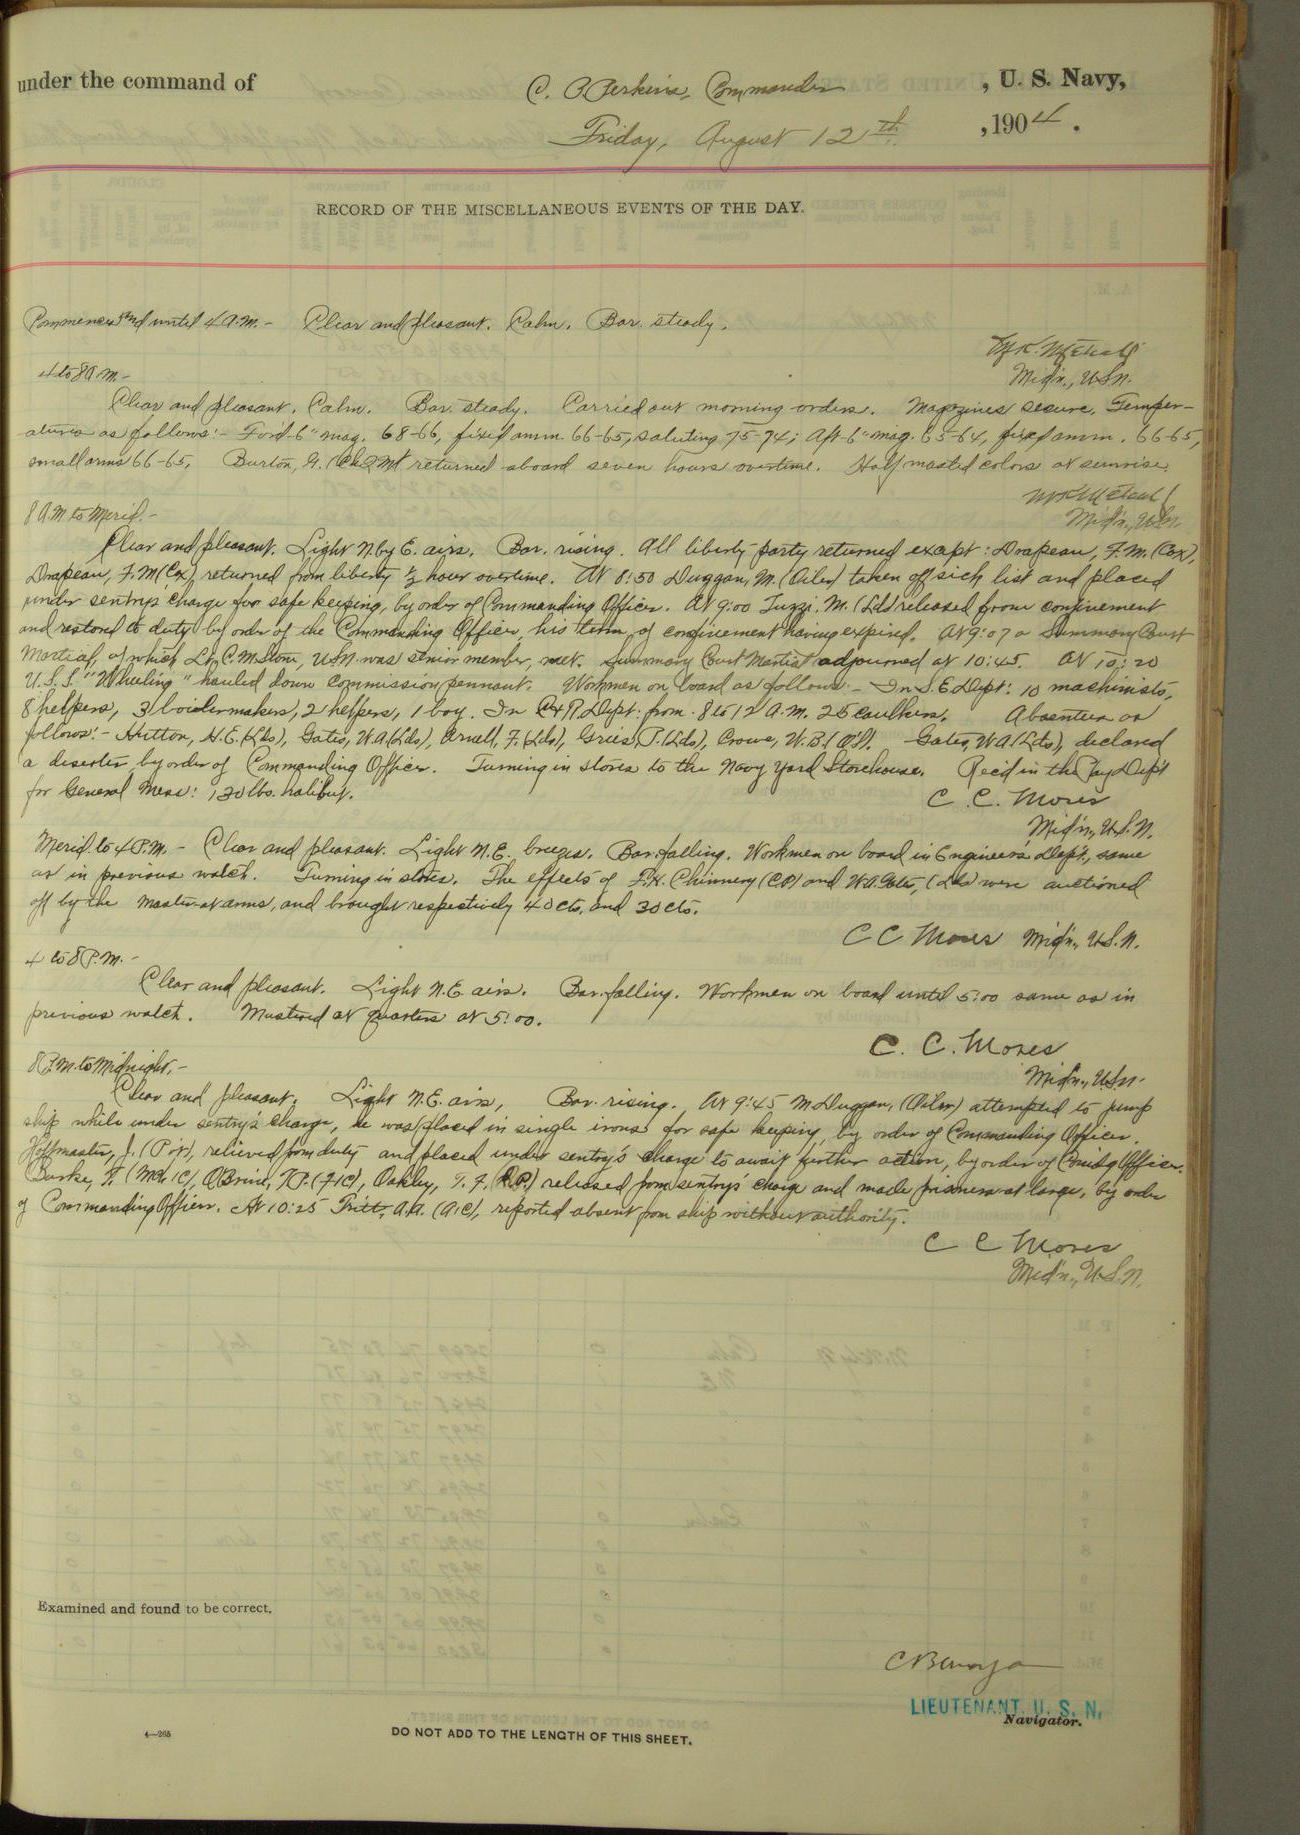 under the command of C. P. Perkins, Commander, U. S. Navy,
Friday, August 12th, 1904.
RECORD OF THE MISCELLANEOUS EVENTS OF THE DAY.
Commences and until 4 A.M. - Clear and pleasant. Calm. Bar. steady.
Mid'n., U.S.N.
4 to 8 A.M. -
Clear and pleasant. Calm. Bar. steady. Carried out morning orders. Magazines secure. Temper-
atures as follows:- For'd 6" mag. 68-66, fixed amm. 66-65, saluting 75-74; Aft 6" mag. 65-64, fixed amm. 66-65,
small arms 66-65. Burton, G. returned aboard seven hours overtime. Half masted colors at sunrise.
Mid'n., U.S.N.
8 A.M. to Merid. -
Clear and pleasant. Light N. by E. airs. Bar. rising. All liberty party returned except: Drapeau, F.M. (Cox),
Drapeau, F.M. (Cox), returned from liberty ½ hour overtime. At 8:50 Duggan, M. (Oiler) taken off sick list and placed
under sentry's charge for safe keeping, by order of Commanding Officer. At 9:00 Tuzzi, M. (Lds) released from confinement
and restored to duty by order of the Commanding Officer, his term of confinement having expired. At 9:07 a Summary Court
Martial, of which Lt. C.M. Stone, U.S.N. was senior member, met. Summary Court Martial adjourned at 10:45. At 10:20
U.S.S. "Wheeling" hauled down commission pennant. Workmen on board as follows:- In S.E. Dept: 10 machinists,
8 helpers, 3 boilermakers, 2 helpers, 1 boy. In C & R. Dept: from 8 to 12 A.M. 25 caulkers. Absentees as
follows:- Hutton, H.E. (Lds), Gates, W.A. (Lds), Arnell, F. (Lds), Gries, J. (Lds), Crowe, W.B. Gates, W.A. (Lds), declared
a deserter by order of Commanding Officer. Turning in stores to the Navy Yard Storehouse. Rec'd in the Pay Dep't
for General Mess: 130 lbs. halibut.
C. C. Moses
Mid'n., U.S.N.
Merid. to 4 P.M. - Clear and pleasant. Light N.E. breeze. Bar. falling. Workmen on board in Engineers Dept., same
as in previous watch. Turning in stores. The effects of F.H. Chinnery (CP) and W.A. Gates, (Lds) were auctioned
off by the Master at arms, and brought respectively 40 cts. and 30 cts.
C C Moses Mid'n., U.S.N.
4 to 8 P.M. -
Clear and pleasant. Light N.E. airs. Bar. falling. Workmen on board until 5:00 same as in
previous watch. Mustered at quarters at 5:00.
C. C. Moses
Mid'n., U.S.N.
8 P.M. to Midnight. -
Clear and pleasant. Light N.E. airs, Bar. rising. At 9:45 M. Duggan, (Oiler) attempted to jump
ship while under sentry's charge, he was placed in single irons for safe keeping, by order of Commanding Officer.
Hoffmaster, J. (Pvt), relieved from duty and placed under sentry's charge to await further action, by order of Comd'g Officer.
Burke, F. (M 1C), O'Brine, (F1C), Oakley, T. F. (C.P.) released from sentry's charge and made prisoners at large, by order
of Commanding Officer. At 10:25 Tritt, A.A. (A.C.), reported absent from ship without authority.
C C Moses
Mid'n., U.S.N.
Examined and found to be correct.
LIEUTENANT, U. S. N.
Navigator.
4—265
DO NOT ADD TO THE LENGTH OF THIS SHEET.